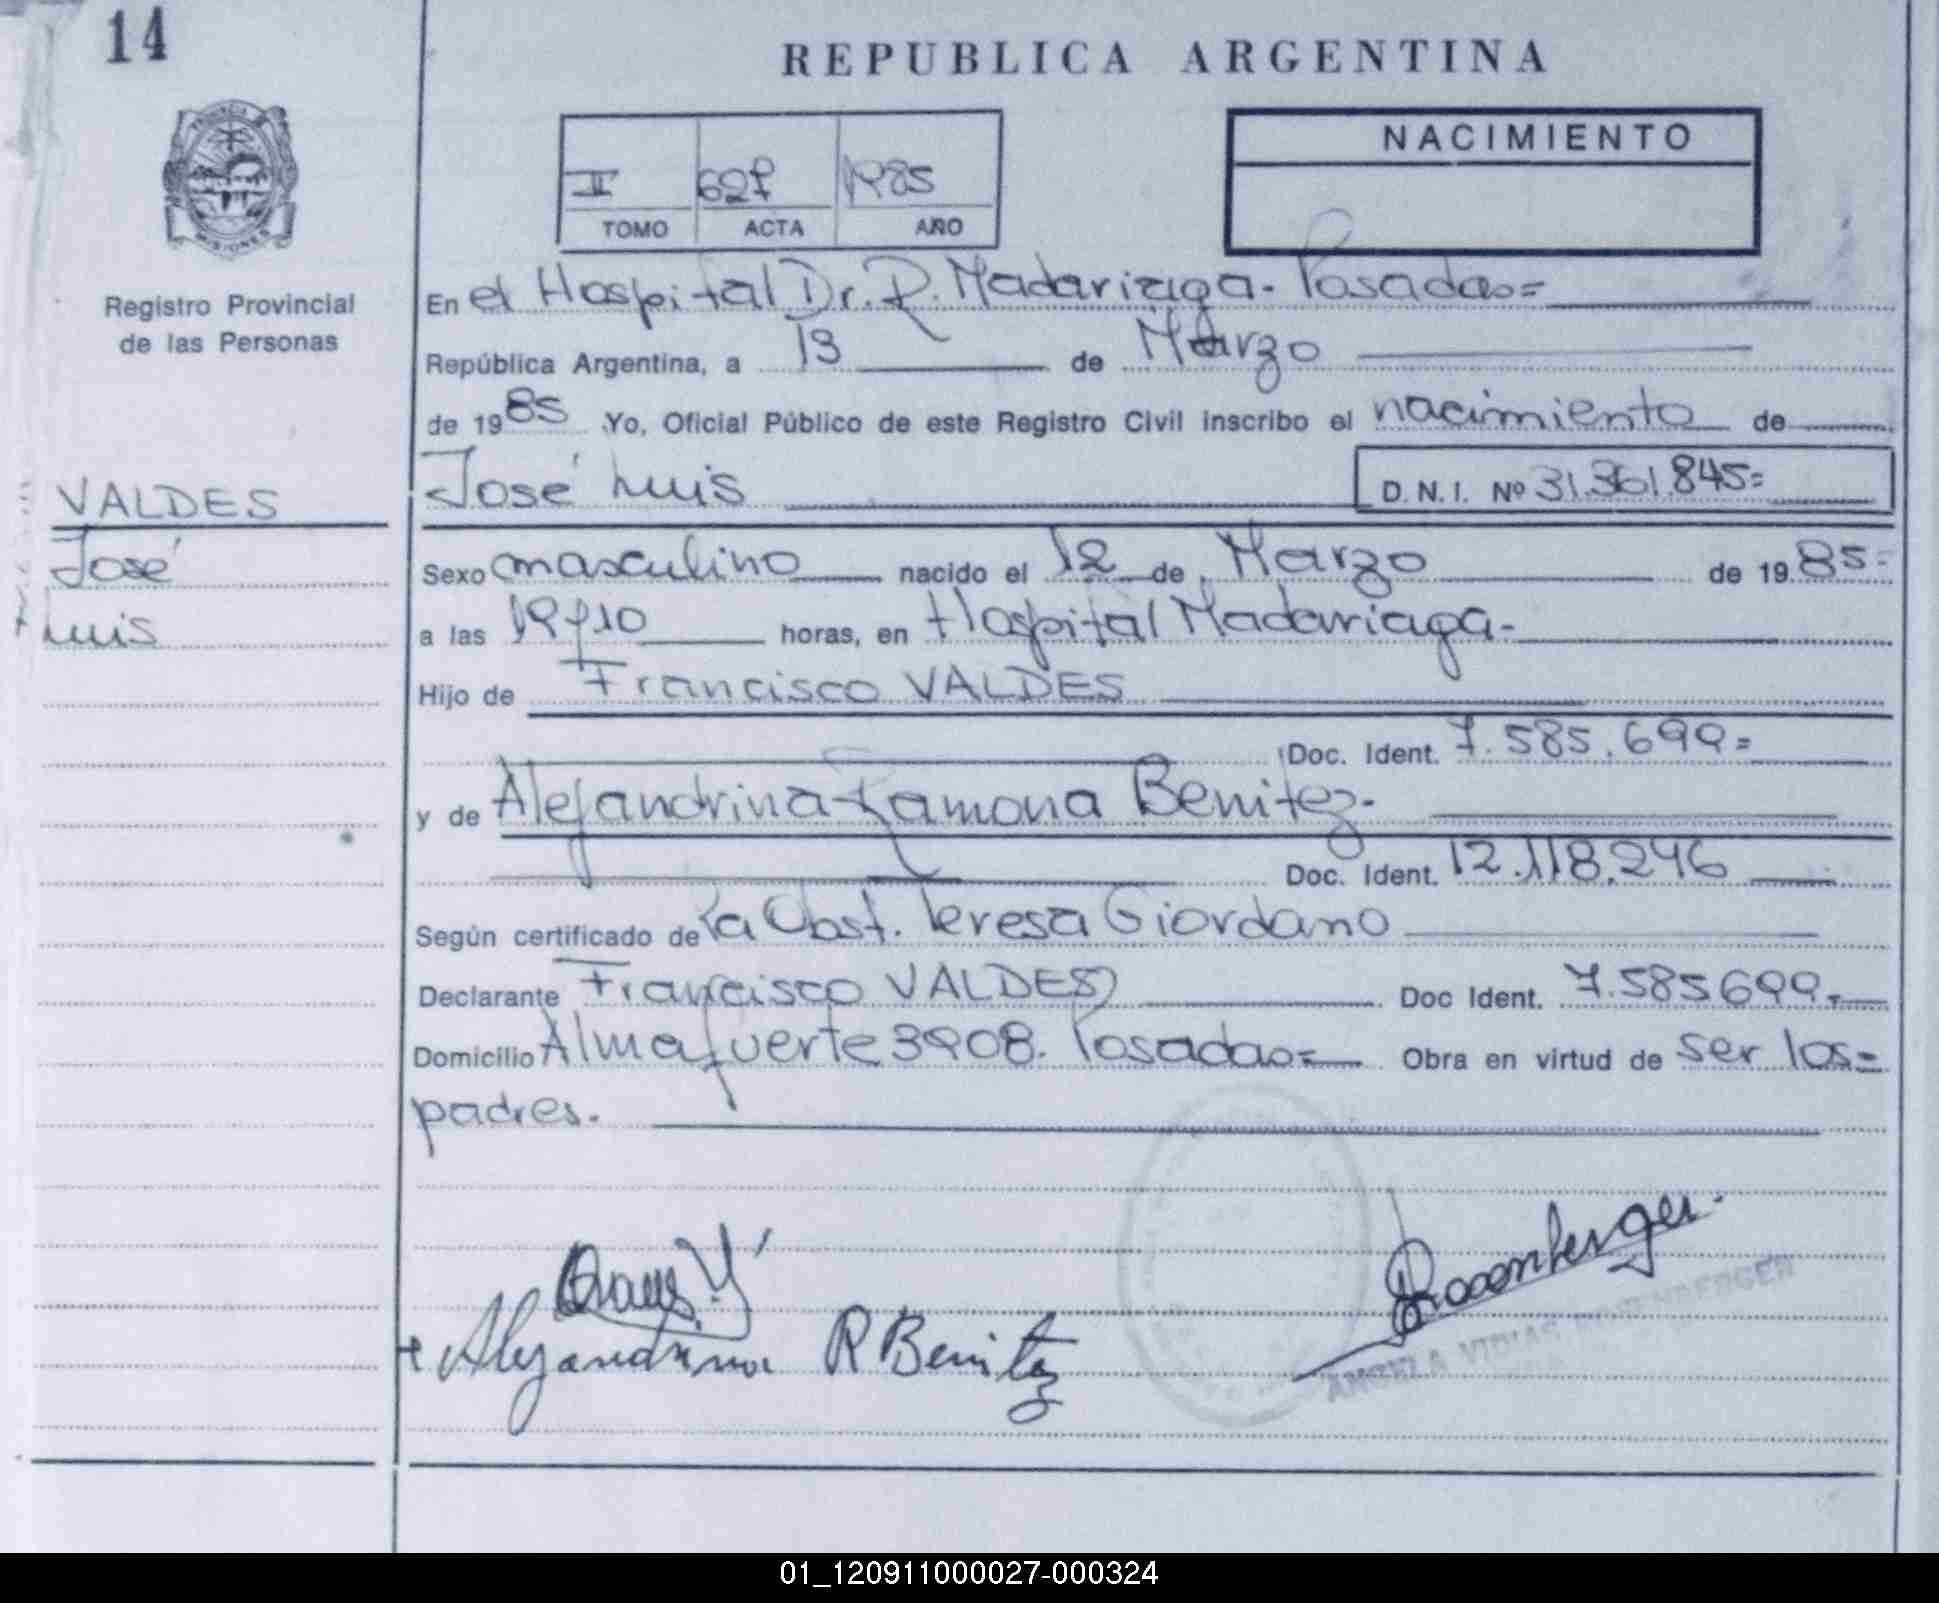 14
REPUBLICA ARGENTINA
PROVINCIA DE
MISIONES
II 627 1985
TOMO ACTA AÑO
NACIMIENTO
Registro Provincial
de las Personas
En el Hospital Dr. R. Madariaga. Posadas=
República Argentina, a 13 de Marzo
de 1985 Yo, Oficial Público de este Registro Civil inscribo el nacimiento de
José Luis D. N. I. Nº 31.361.845=
VALDES
José
Luis
Sexo masculino nacido el 12 de Marzo de 1985=
a las 19,10 horas, en Hospital Madariaga-
Hijo de Francisco VALDES
Doc. Ident. 7.585.699=
y de Alejandrina Ramona Benitez-
Doc. Ident. 12.118.246
Según certificado de la Obst. Teresa Giordano
Declarante Francisco VALDES Doc Ident. 7.585699.-
Domicilio Almafuerte 3908. Posadas= Obra en virtud de ser los=
padres.
Rosenberger
Alejandrina R Benitez
ANGELA VIDIAS ROSENBERGER
01_120911000027-000324